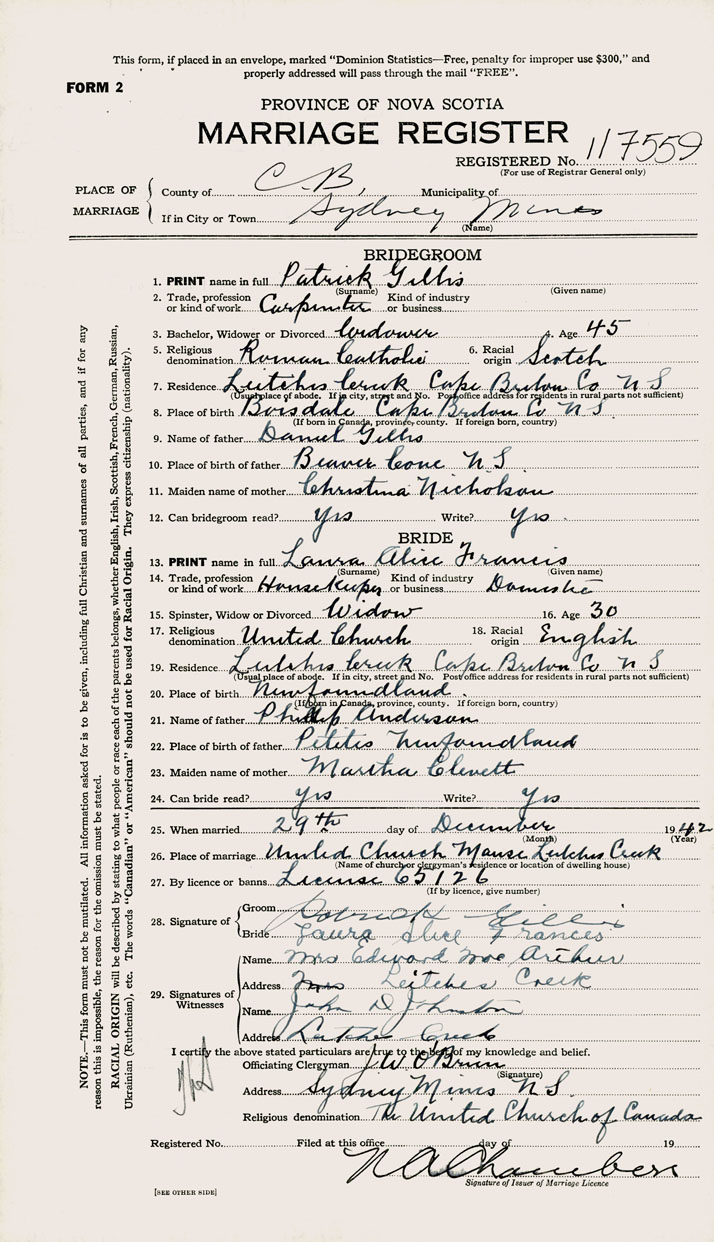 This form, if placed in an envelope, marked "Dominion Statistics—Free, penalty for improper use $300," and
properly addressed will pass through the mail "FREE".
FORM 2
PROVINCE OF NOVA SCOTIA
MARRIAGE REGISTER
REGISTERED No. 117559
(For use of Registrar General only)
PLACE OF MARRIAGE
County of C.B, Municipality of
If in City or Town Sydney Mines
(Name)
BRIDEGROOM
1. PRINT name in full Patrick Gillis
(Surname) (Given name)
2. Trade, profession or kind of work Carpenter Kind of industry or business
3. Bachelor, Widower or Divorced Widower 4. Age 45
5. Religious denomination Roman Catholic 6. Racial origin Scotch
7. Residence Leitches Creek Cape Breton Co N S
(Usual place of abode. If in city, street and No. Post office address for residents in rural parts not sufficient)
8. Place of birth Boisdale Cape Breton Co N S
(If born in Canada, province, county. If foreign born, country)
9. Name of father Daniel Gillis
10. Place of birth of father Beaver Cove N S
11. Maiden name of mother Christina Nicholson
12. Can bridegroom read? Yes Write? Yes
BRIDE
13. PRINT name in full Laura Alice Francis
(Surname) (Given name)
14. Trade, profession or kind of work Housekeeper Kind of industry or business Domestic
15. Spinster, Widow or Divorced Widow 16. Age 30
17. Religious denomination United Church 18. Racial origin English
19. Residence Leitches Creek Cape Breton Co N S
(Usual place of abode. If in city, street and No. Post office address for residents in rural parts not sufficient)
20. Place of birth Newfoundland
(If born in Canada, province, county. If foreign born, country)
21. Name of father Phillip Anderson
22. Place of birth of father Petites Newfoundland
23. Maiden name of mother Martha Clevett
24. Can bride read? Yes Write? Yes
25. When married 29th day of December 1942
(Month) (Year)
26. Place of marriage United Church Manse Leitches Creek
(Name of church or clergyman's residence or location of dwelling house)
27. By licence or banns License 65126
(If by licence, give number)
28. Signature of
Groom Patrick Gillis
Bride Laura Alice Frances
29. Signatures of Witnesses
Name Mrs Edward Mac Arthur
Address Leitches Creek
Name John D Johnston
Address Leitches Creek
I certify the above stated particulars are true to the best of my knowledge and belief.
Officiating Clergyman J W O'Brien
(Signature)
Address Sydney Mines N S.
Religious denomination The United Church of Canada
Registered No. Filed at this office day of 19
N A Chambers
Signature of Issuer of Marriage Licence
[SEE OTHER SIDE]
NOTE.—This form must not be mutilated. All information asked for is to be given, including full Christian and surnames of all parties, and if for any
reason this is impossible, the reason for the omission must be stated.
RACIAL ORIGIN will be described by stating to what people or race each of the parents belongs, whether English, Irish, Scottish, French, German, Russian,
Ukrainian (Ruthenian), etc. The words "Canadian" or "American" should not be used for Racial Origin. They express citizenship (nationality).